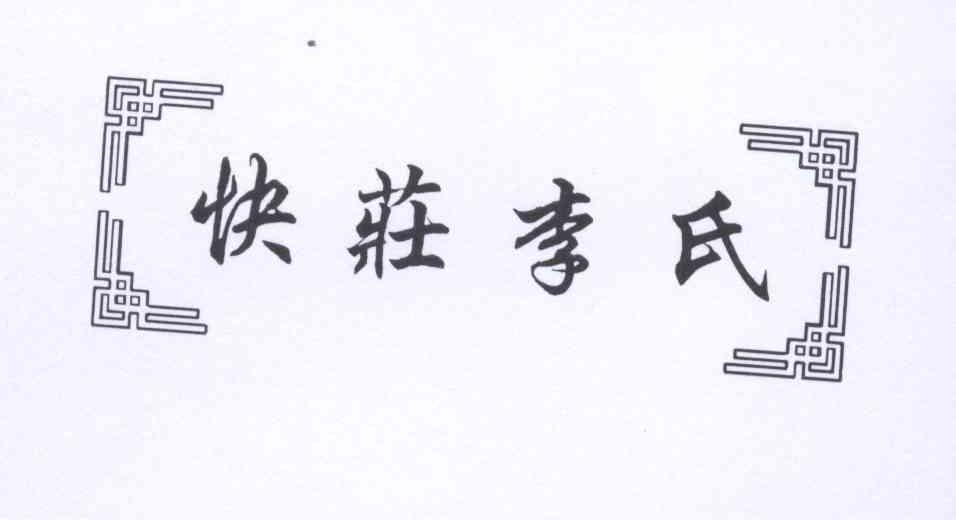 快莊李氏